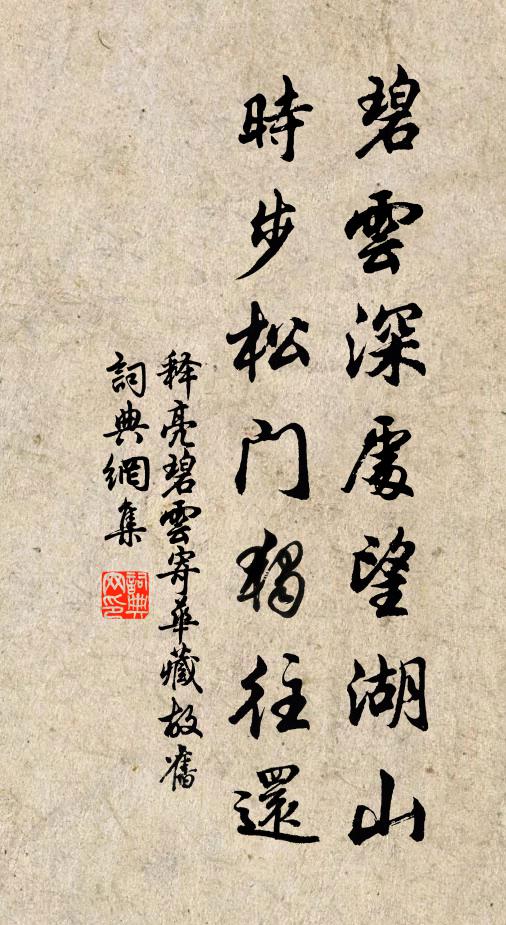 碧雲深處望湖山
時步松門獨往還
释亮碧雲寄華藏故舊
詞典網集
詞典網印